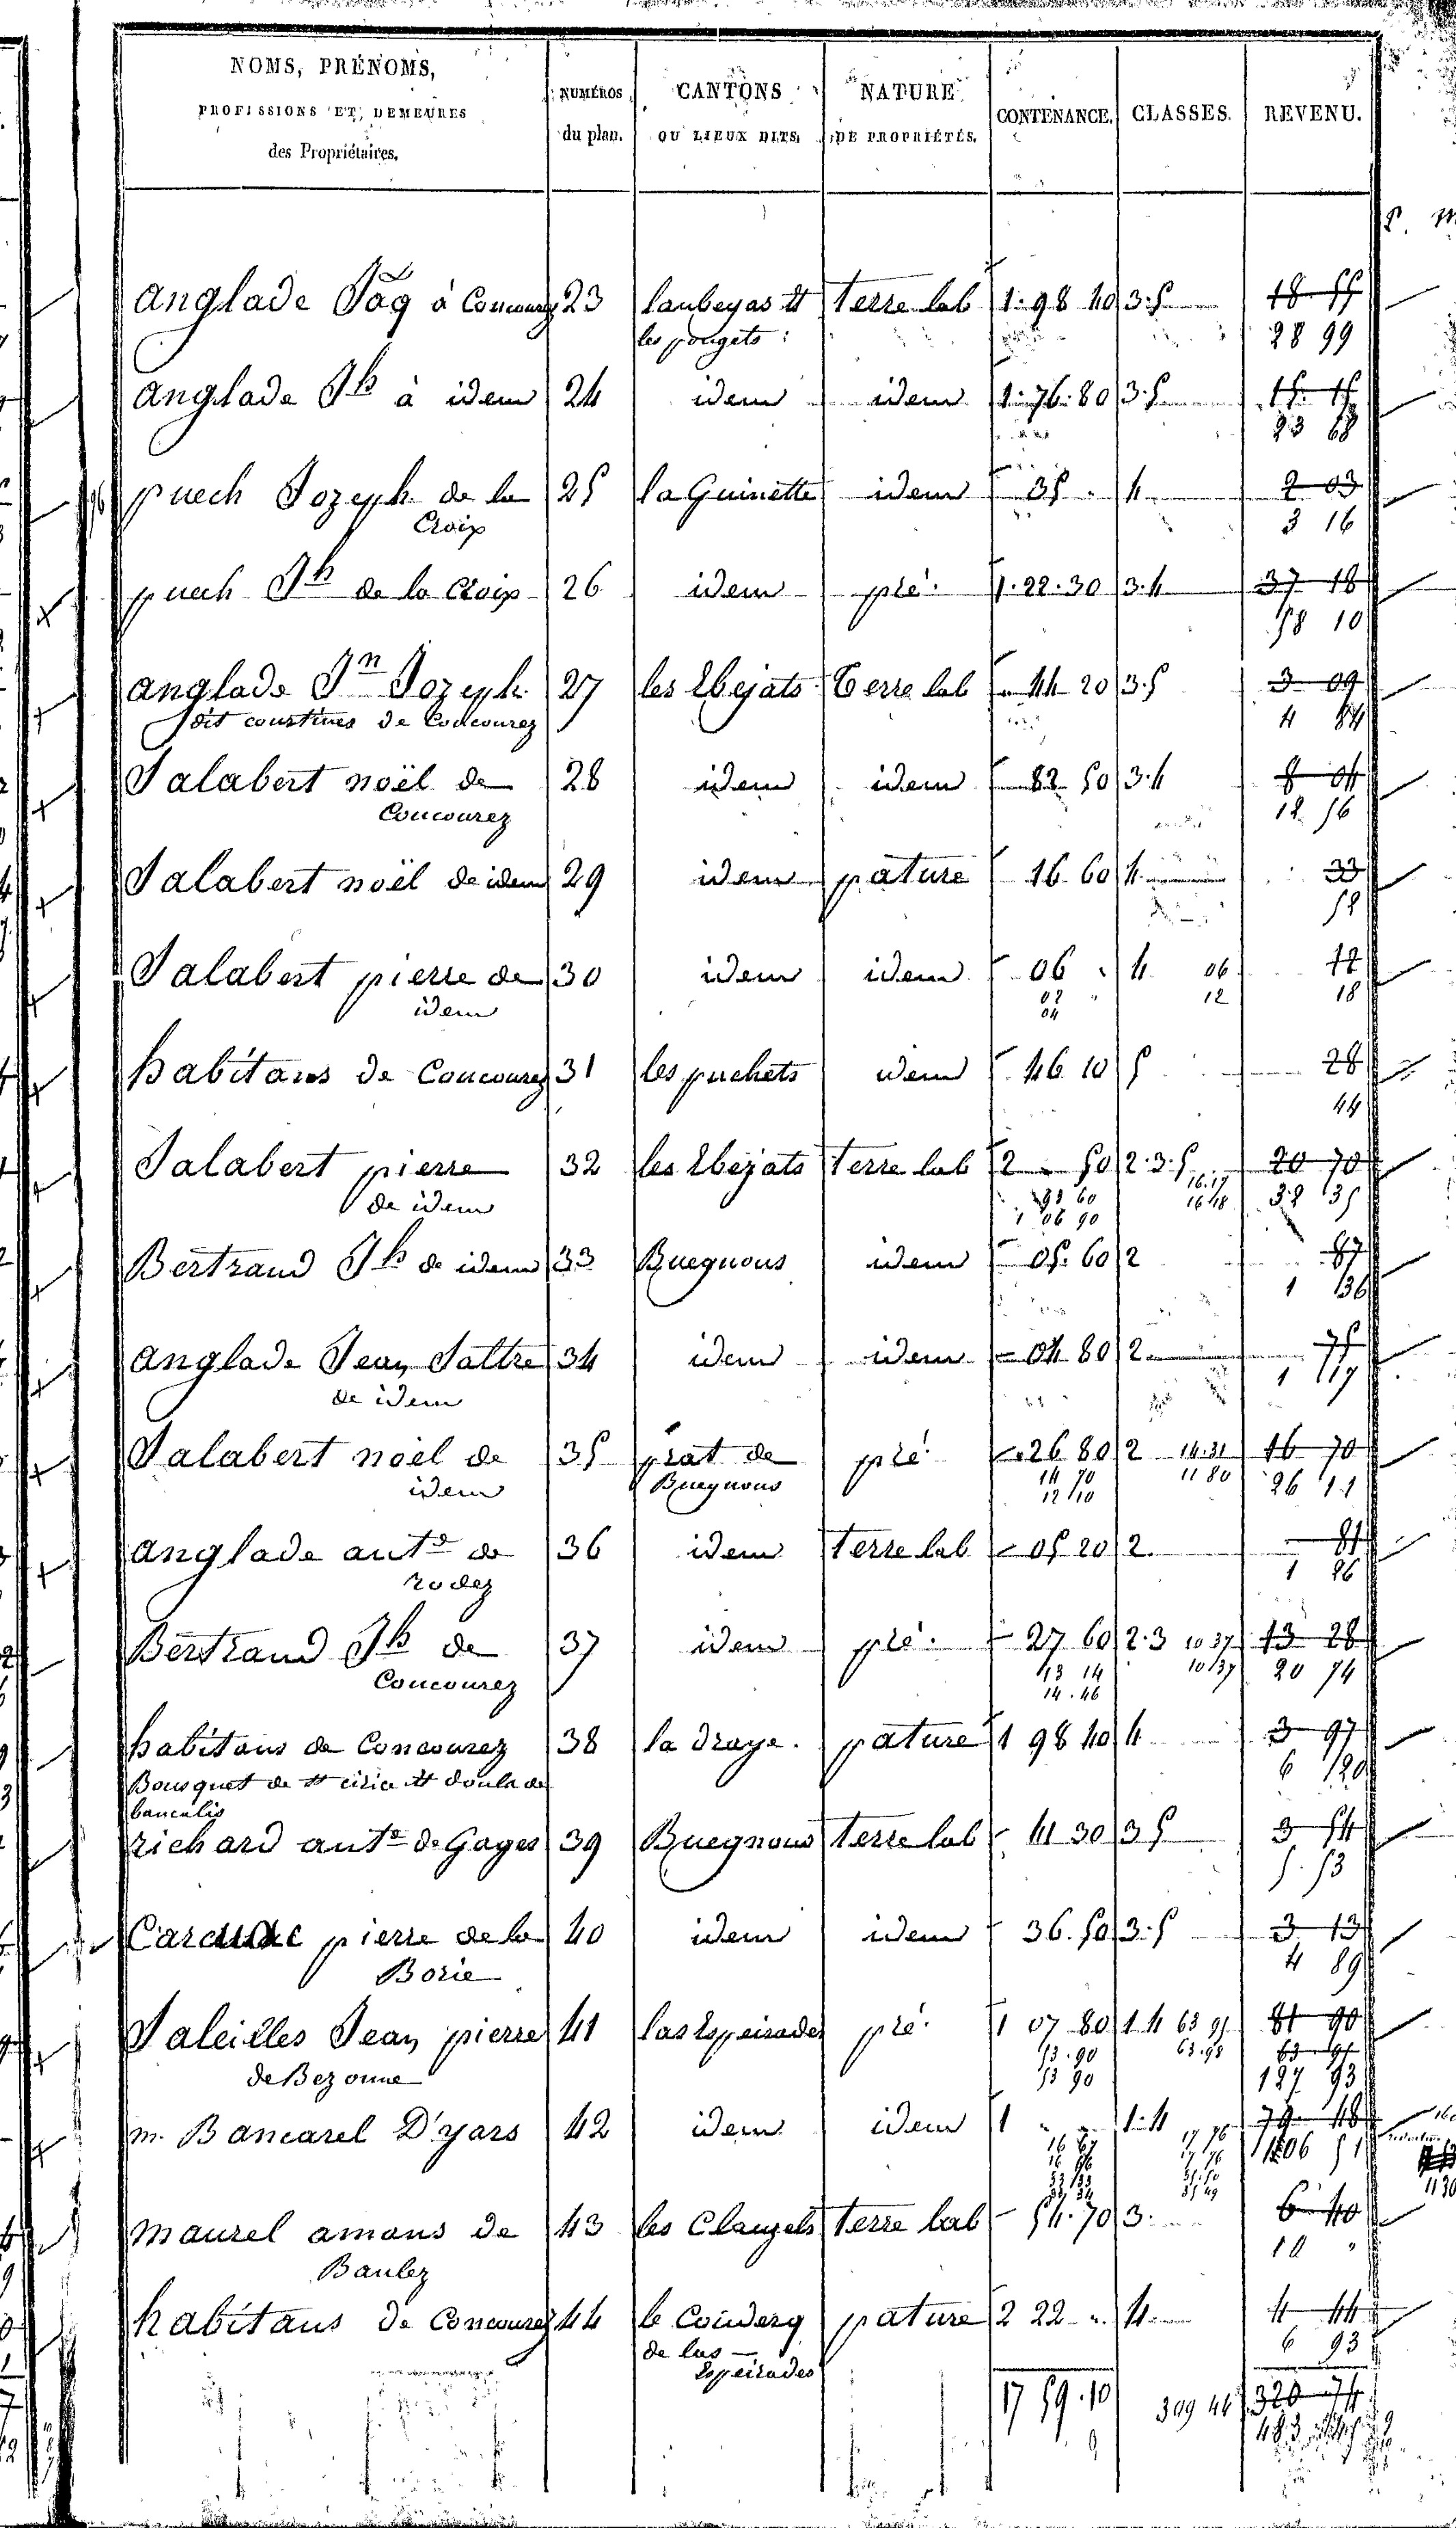 NOMS, PRÉNOMS,
PROFISSIONS ET DEMEURES
des Propriétaires.
NUMÉROS
du plan.
CANTONS
OU LIEUX DITS.
NATURE
DE PROPRIÉTÉS.
CONTENANCE.
CLASSES.
REVENU.
anglade Jâq à Concourez 23 laubeyas et terre lab 1. 98 40 3.5 18 55
les pougets 28 99
anglade Jh à idem 24 idem idem 1. 76. 80 3.5 15 15
23 68
puech Jozeph de la 25 la Guinette idem 35 4 2 03
Croix 3 16
puech Jh de la Croix 26 idem pré. 1. 22. 30 3.4 37 18
58 10
anglade Jn Jozeph 27 les Ebejats terre lab 44 20 3.5 3 09
dit courtines de Concourez 4 84
Salabert noël de 28 idem idem 82 50 3.4 8 04
Concourez 12 56
Salabert noël de idem 29 idem pature 16 60 4 33
52
Salabert pierre de 30 idem idem 06 4 06 12
idem 02 12 18
04
habitans de Concourez 31 les puchets idem 46 10 5 28
44
Salabert pierre 32 les Ebejats terre lab 2 50 2.3.5 20 70
de idem 93 60 16.17 32 35
1 06 90 16 18
Bertrand Jh de idem 33 Buegnous idem 05. 60 2 87
1 36
anglade Jean Sattre 34 idem idem 04 80 2 75
de idem 1 17
Salabert noël de 35 prat de pré 26 80 2 14.31 16 70
idem Buegnous 14 70 11 80 26 11
12 10
anglade ante de 36 idem terre lab 05 20 2. 81
rodez 1 26
Bertrand Jh de 37 idem pré. 27 60 2.3 10 37 13 28
Concourez 13 14 10 37 20 74
14. 46
habitans de Concourez 38 la draye. pature 1 98 40 4 3 97
6 20
Bousquet de st cirice et doula de
bancalis
richard ante de Gages 39 Buegnous terre lab 41 30 3 5 3 54
5. 53
pierre de la 40 idem idem 36. 50 3.5 3 13
Borie 4 89
Saleilles Jean pierre 41 las Espeirades pré 1 07 80 1.4 63 95 81 90
de Bezonne 53. 90 63. 98
53 90 127 93
m. Bancarel D'yars 42 idem idem 1 1.4 79 48
16 67 17 76 106 51
16 66 17 76
33 33 35.50
33 34 35 49
maurel amans de 43 les Clauzels terre lab 54. 70 3. 6 40
Baulez 10
habitans de Concourez 44 le Couderq pature 2 22 4 4 44
de las 6 93
Espeirades
17 59. 10 309 44 320 74
483